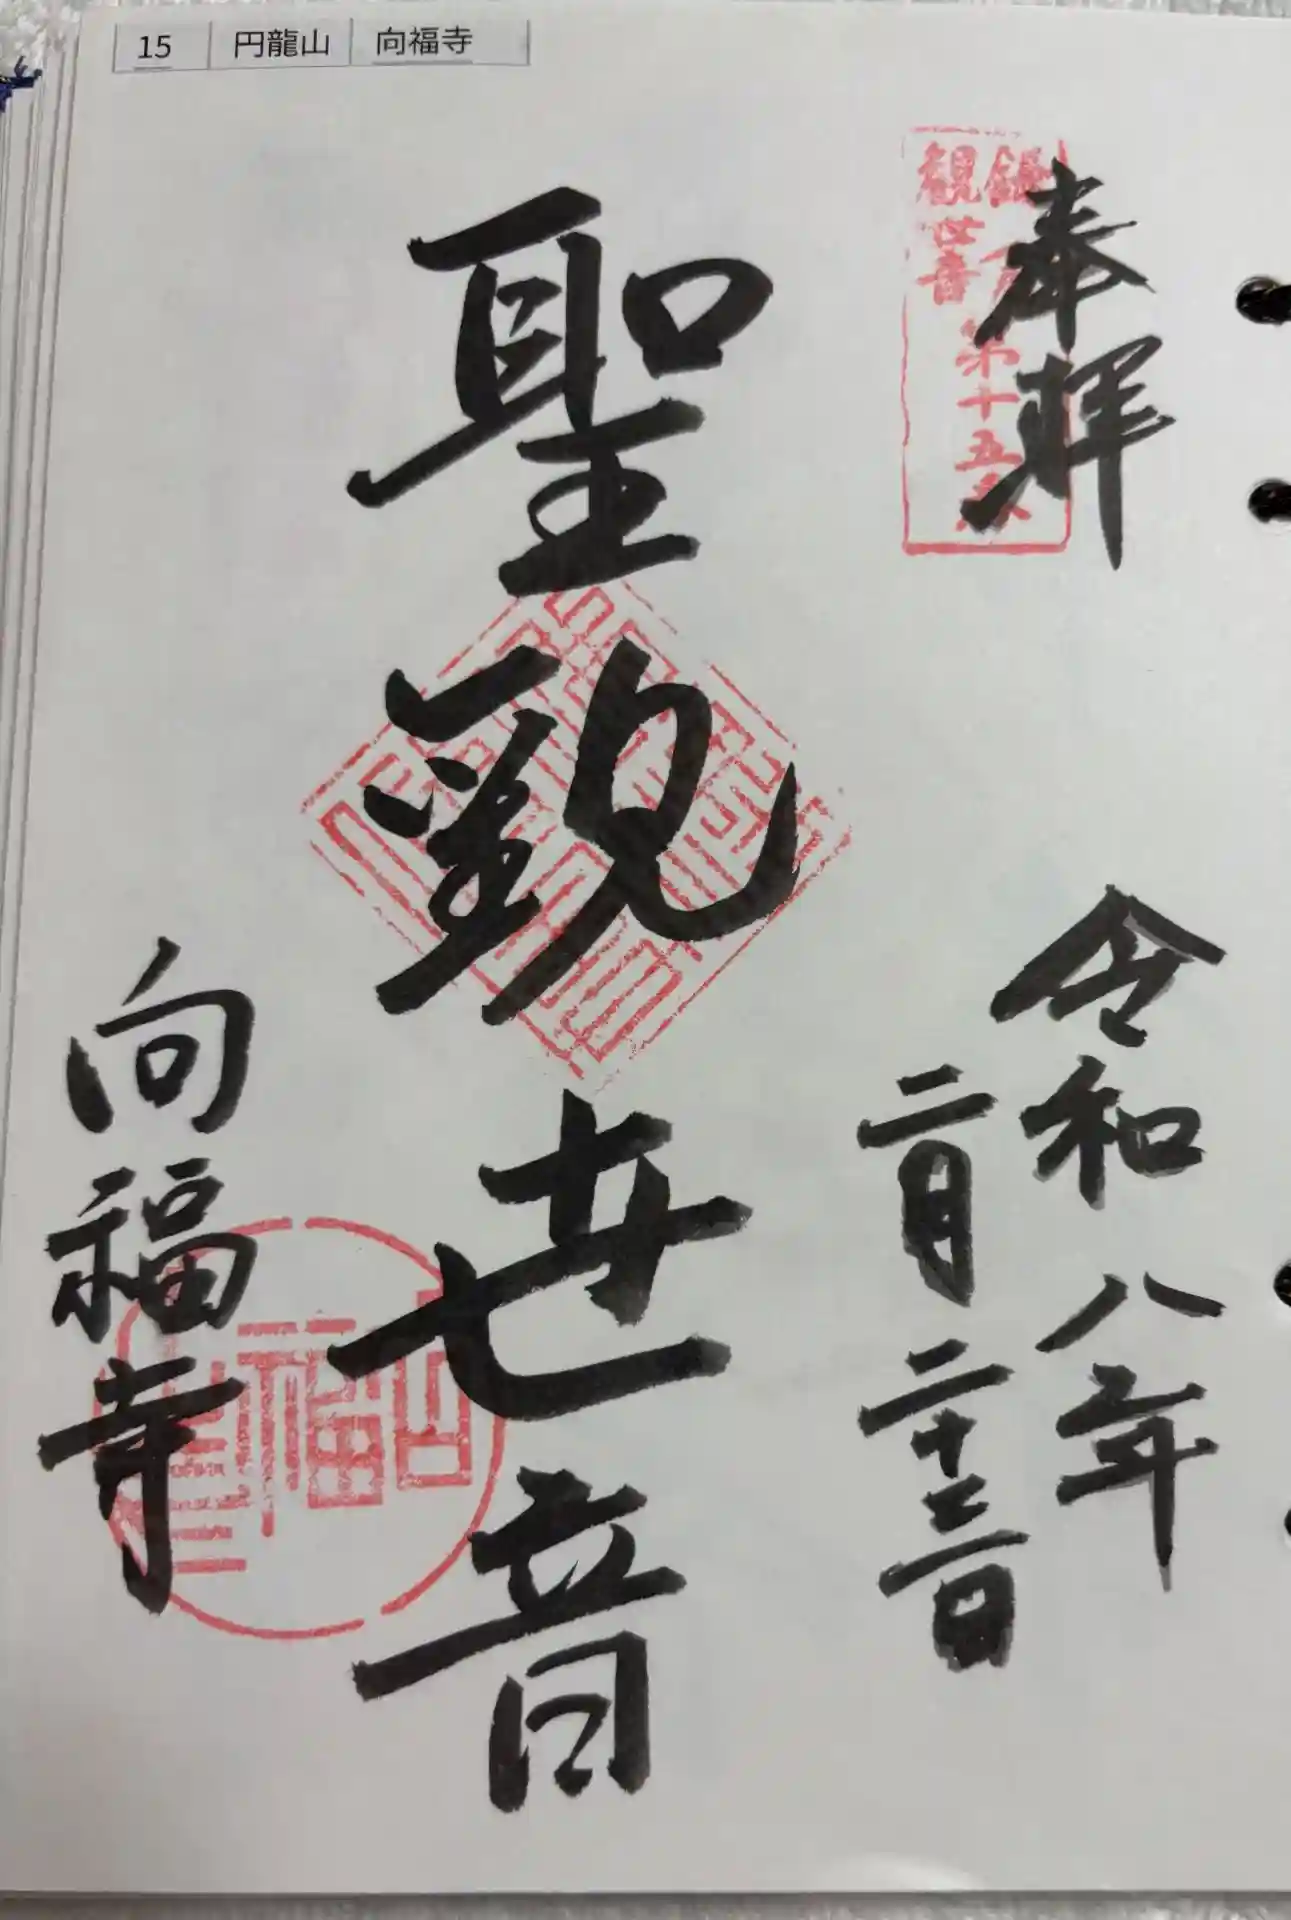 15 円龍山 向福寺
奉拝
鎌倉
観世音
第十五番
令和八年
二月二十三日
聖観世音
向福寺